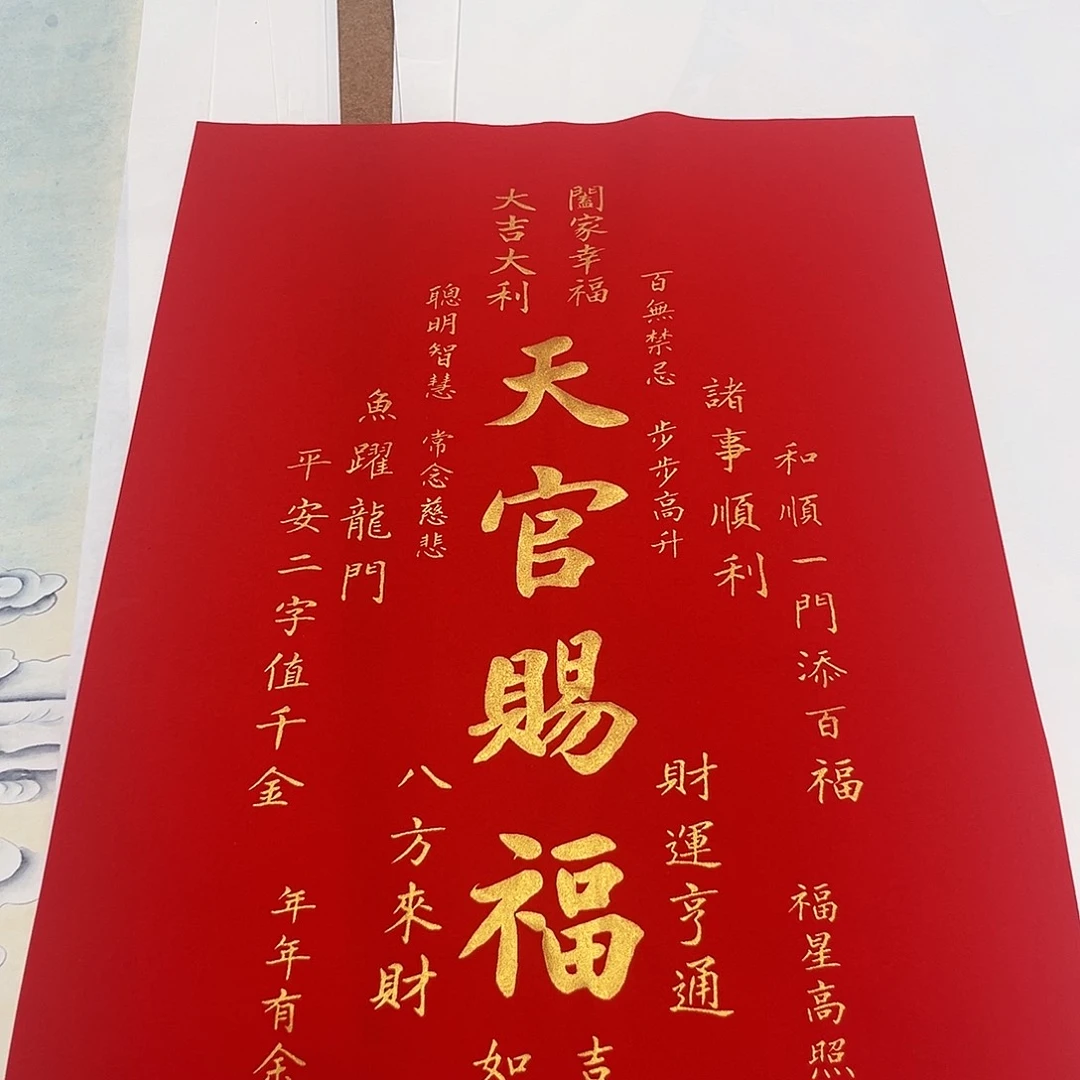 天官賜福
闔家幸福
大吉大利
百無禁忌
步步高升
聰明智慧
常念慈悲
諸事順利
魚躍龍門
和順一門添百福
平安二字值千金
財運亨通
八方來財
福星高照
年年有余
吉
如